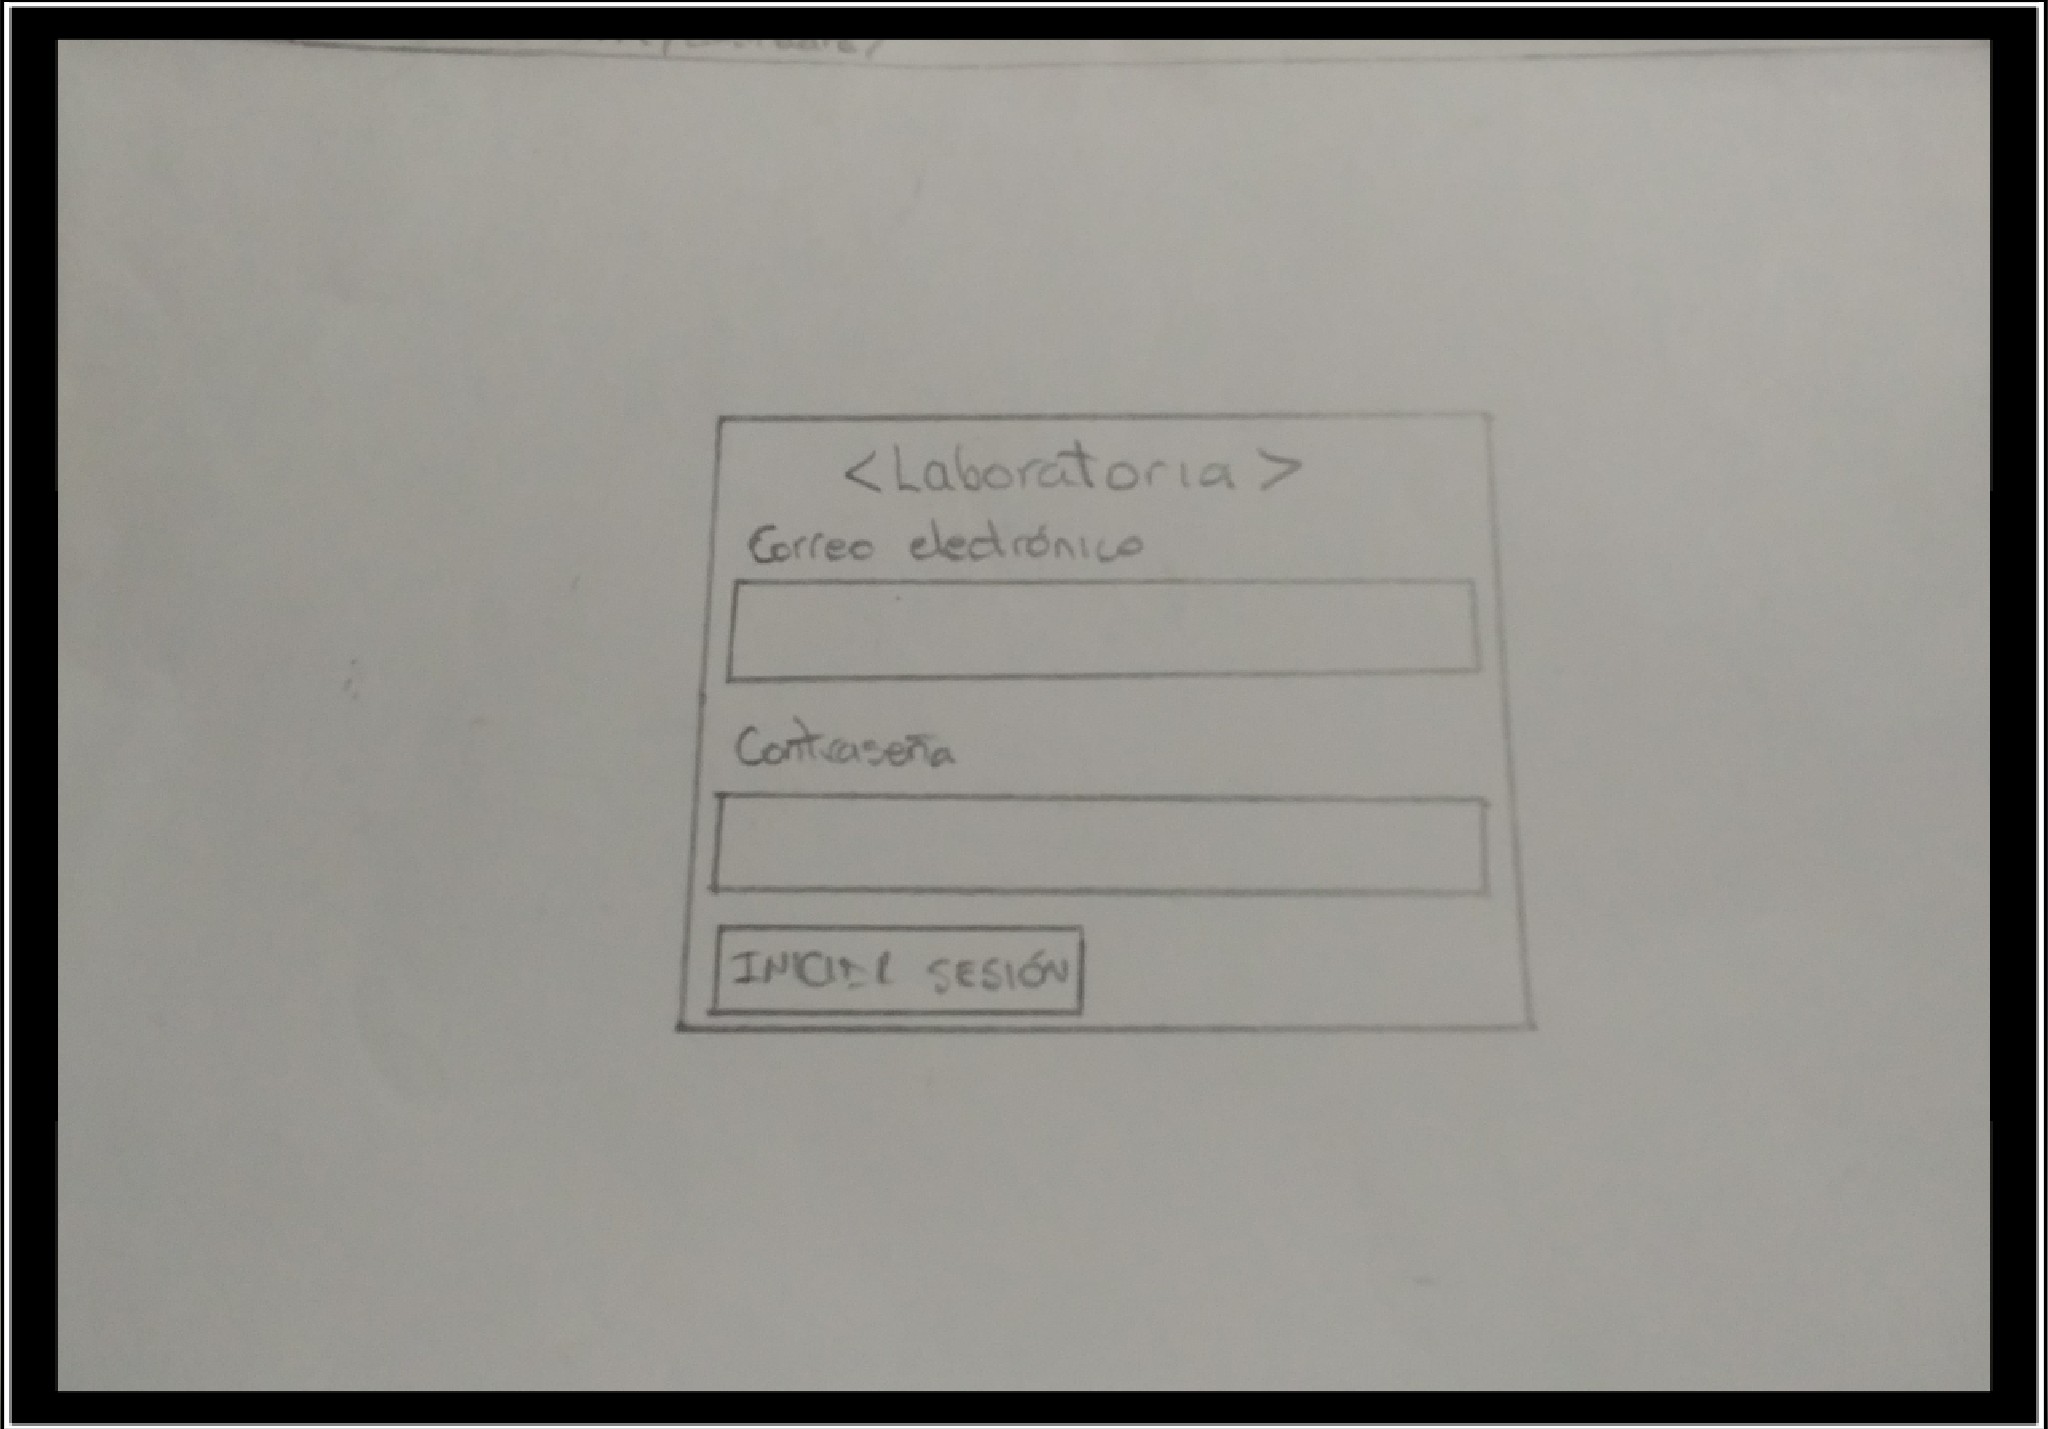 <Laboratoria>
Correo electrónico
Contraseña
INICIAR SESIÓN